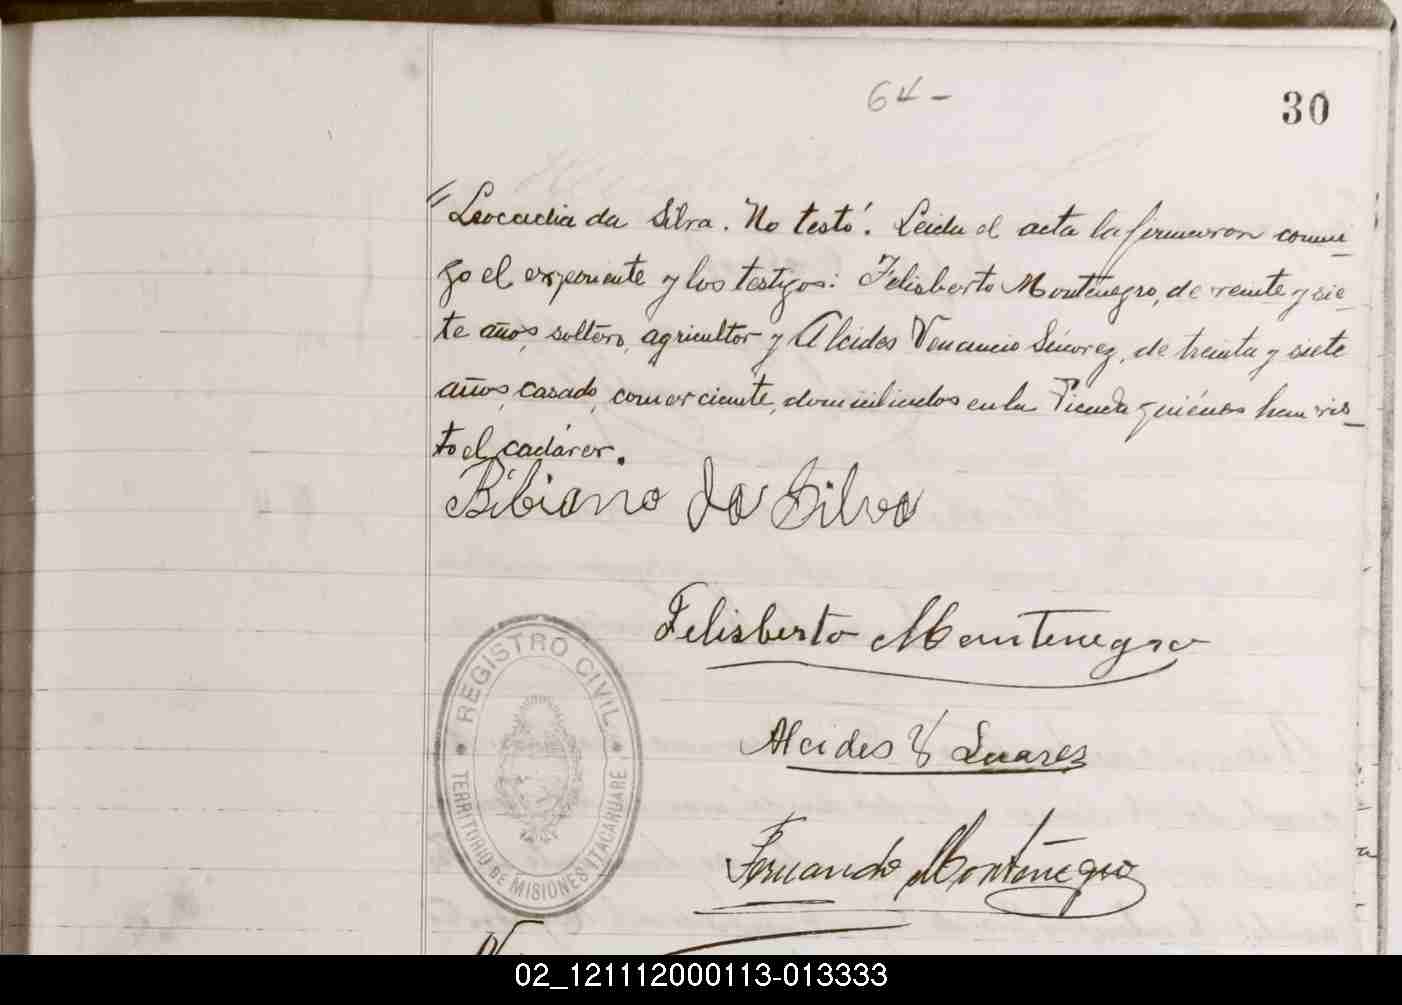 64-
30
" Leocadia da Silva. No testó. Leida el acta la firmaron conmi_
go el exponente y los testigos: Felisberto Montenegro, de veinte y sie-
te años, soltero, agricultor y Alcides Venancio Súarez, de treinta y siete
años, casado, comerciante, domiciliados en la Picada quiénes han vis_
to el cadáver.
Bibiano da Silva
Felisberto Montenegro
Alcides V Suarez
Fernando Montenegro
REGISTRO CIVIL
TERRITORIO DE MISIONES ITACARUARE
02_121112000113-013333